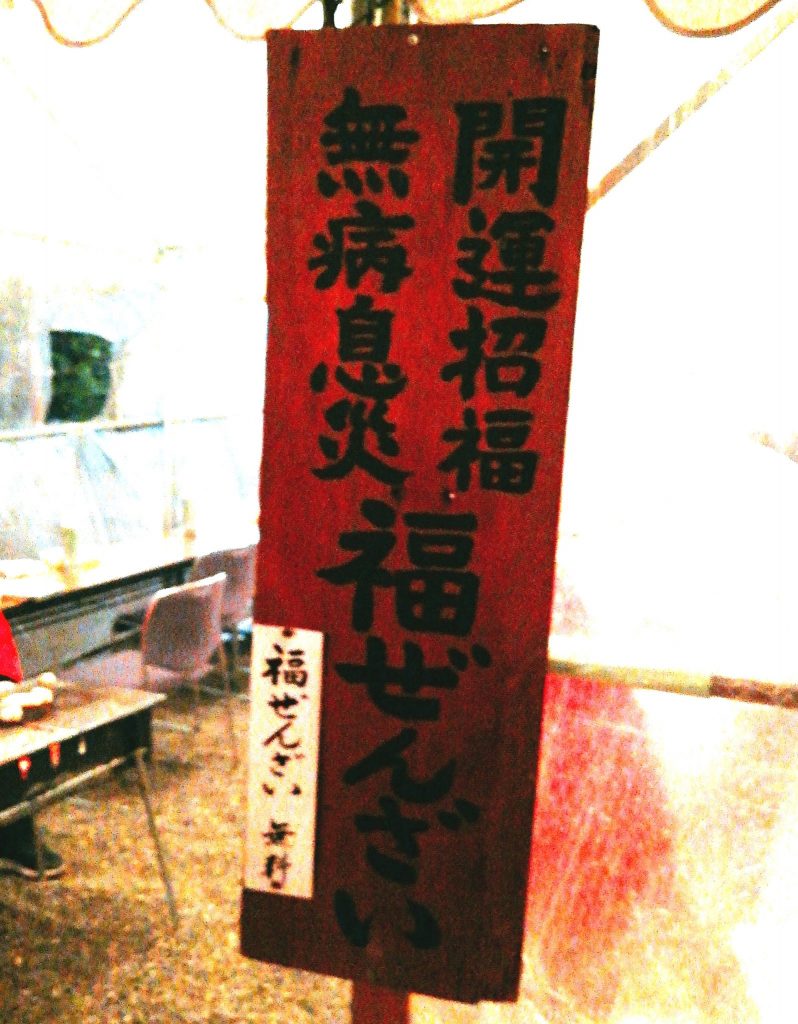 開運招福
無病息災
福ぜんざい
福ぜんざい 無料